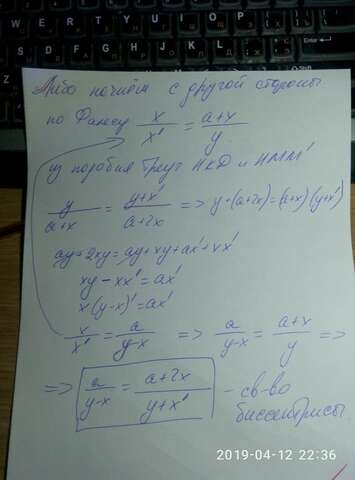 Либо начнём с другой стороны
по Фалесу x/x' = (a+x)/y
из подобия треуг НКД и НММ'
y/(a+x) = (y+x')/(a+2x) => y·(a+2x)=(a+x)(y+x')
ay+2xy=ay+xy+ax'+xx'
xy-xx'=ax'
x(y-x')=ax'
x/x' = a/(y-x) => a/(y-x) = (a+x)/y =>
=> a/(y-x) = (a+2x)/(y+x') - св-во
биссектрисы
2019-04-12 22:36